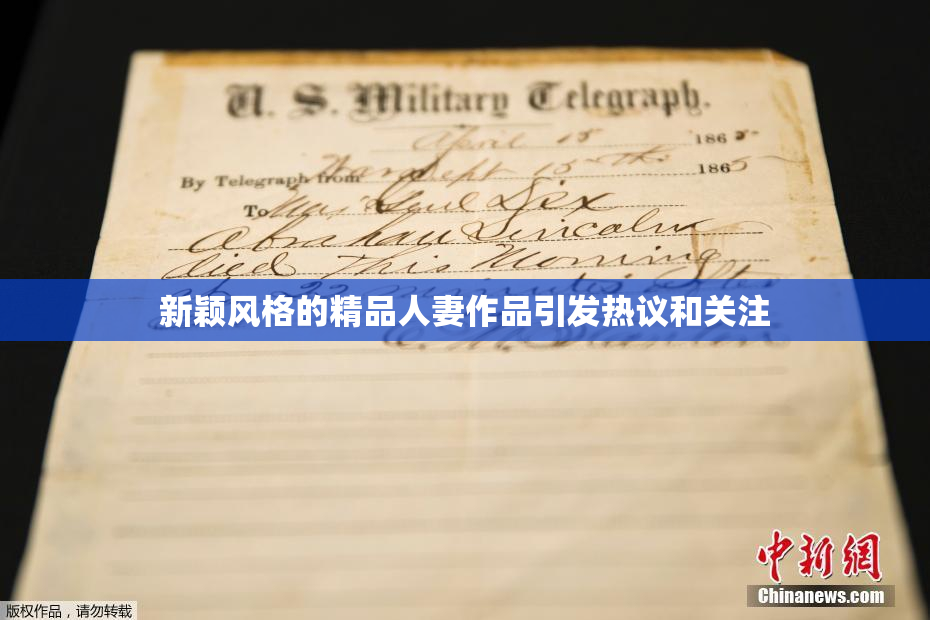 U. S. Military Telegraph.
April 15 1865
By Telegraph from War Dept 15th 1865
To Maj Genl Dix
Abraham Lincoln
died This Morning
at 22 minutes after
新颖风格的精品人妻作品引发热议和关注
E. M. Stanton
中新網
Chinanews.com
版权作品，请勿转载